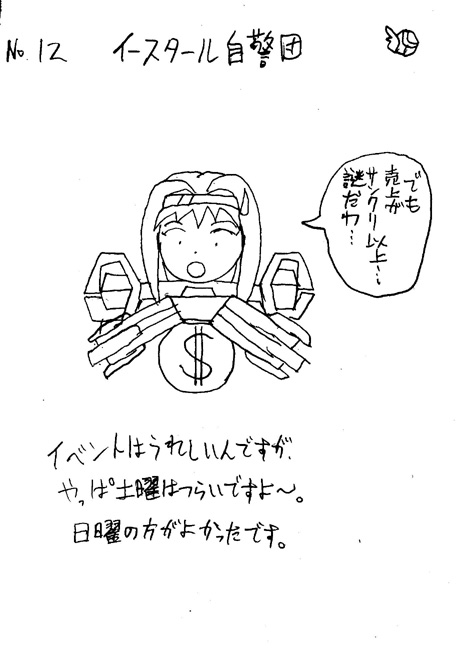 No.12 イースタール自警団
でも
売上が
サンクリ以上…
謎だわ…
$
イベントはうれしいんですが、
やっぱ土曜はつらいですよ〜。
日曜の方がよかったです。